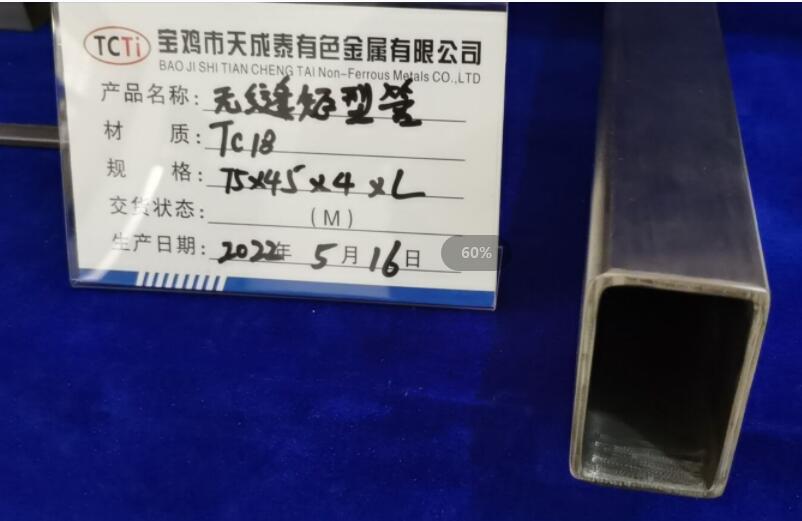 TCTi 宝鸡市天成泰有色金属有限公司
BAO JI SHI TIAN CHENG TAI Non-Ferrous Metals CO.,LTD
产品名称: 无缝矩型管
材 质: TC18
规 格: 75×45×4×L
交货状态: (M)
生产日期: 2022年 5月16日
60%